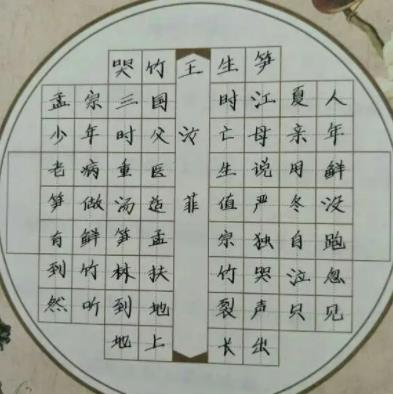 哭竹生笋
孟宗三国时江夏人
少年时父亡母亲年
老病重医生说用鲜
笋做汤造值严冬没
有鲜笋孟宗独自跑
到竹林扶竹哭泣忽
然听到地裂声只见
地上长出
王汝菲